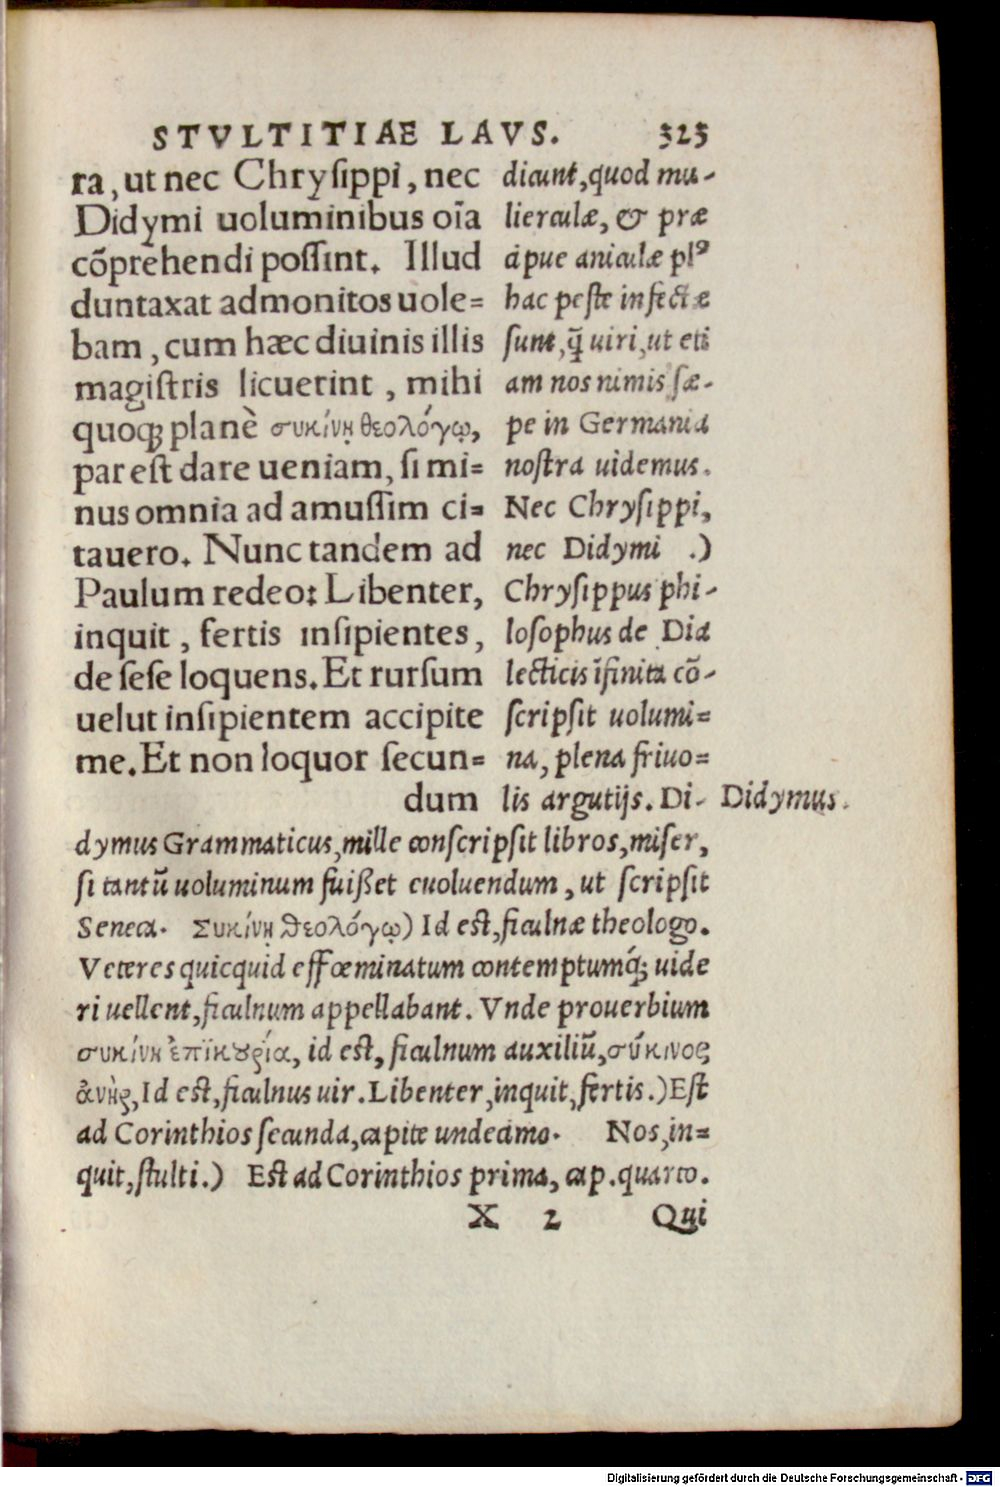 STVLTITIAE LAVS. 323
ra, ut nec Chrysippi, nec
Didymi uoluminibus oīa
cōprehendi possint. Illud
duntaxat admonitos uole=
bam, cum hæc diuinis illis
magistris licuerint, mihi
quoq; planè συκίνῃ θεολόγῳ,
par est dare ueniam, si mi=
nus omnia ad amussim ci=
tauero. Nunc tandem ad
Paulum redeo: Libenter,
inquit, fertis insipientes,
de sese loquens. Et rursum
uelut insipientem accipite
me. Et non loquor secun=
dum
dicunt, quod mu-
lierculæ, & præ
cipue aniculæ plꝰ
hac peste infectæ
sunt, q̃ uiri, ut eti
am nos nimis sæ-
pe in Germania
nostra uidemus.
Nec Chrysippi,
nec Didymi .)
Chrysippus phi-
losophus de Dia
lecticis īfinita cō-
scripsit uolumi=
na, plena friuo=
lis argutijs. Di-
Didymus.
dymus Grammaticus, mille conscripsit libros, miser,
si tantū uoluminum fuißet euoluendum, ut scripsit
Seneca. Συκίνῃ θεολόγῳ) Id est, ficulnæ theologo.
Veteres quicquid effœminatum contemptumq́; uide
ri uellent, ficulnum appellabant. Vnde prouerbium
συκίνη ἐπϊκουρία, id est, ficulnum auxiliū, σύκινος
ἀνὴρ, Id est, ficulnus uir. Libenter, inquit, fertis.) Est
ad Corinthios secunda, capite undecimo. Nos, in=
quit, stulti.) Est ad Corinthios prima, cap. quarto.
X 2 Qui
Digitalisierung gefördert durch die Deutsche Forschungsgemeinschaft - DFG